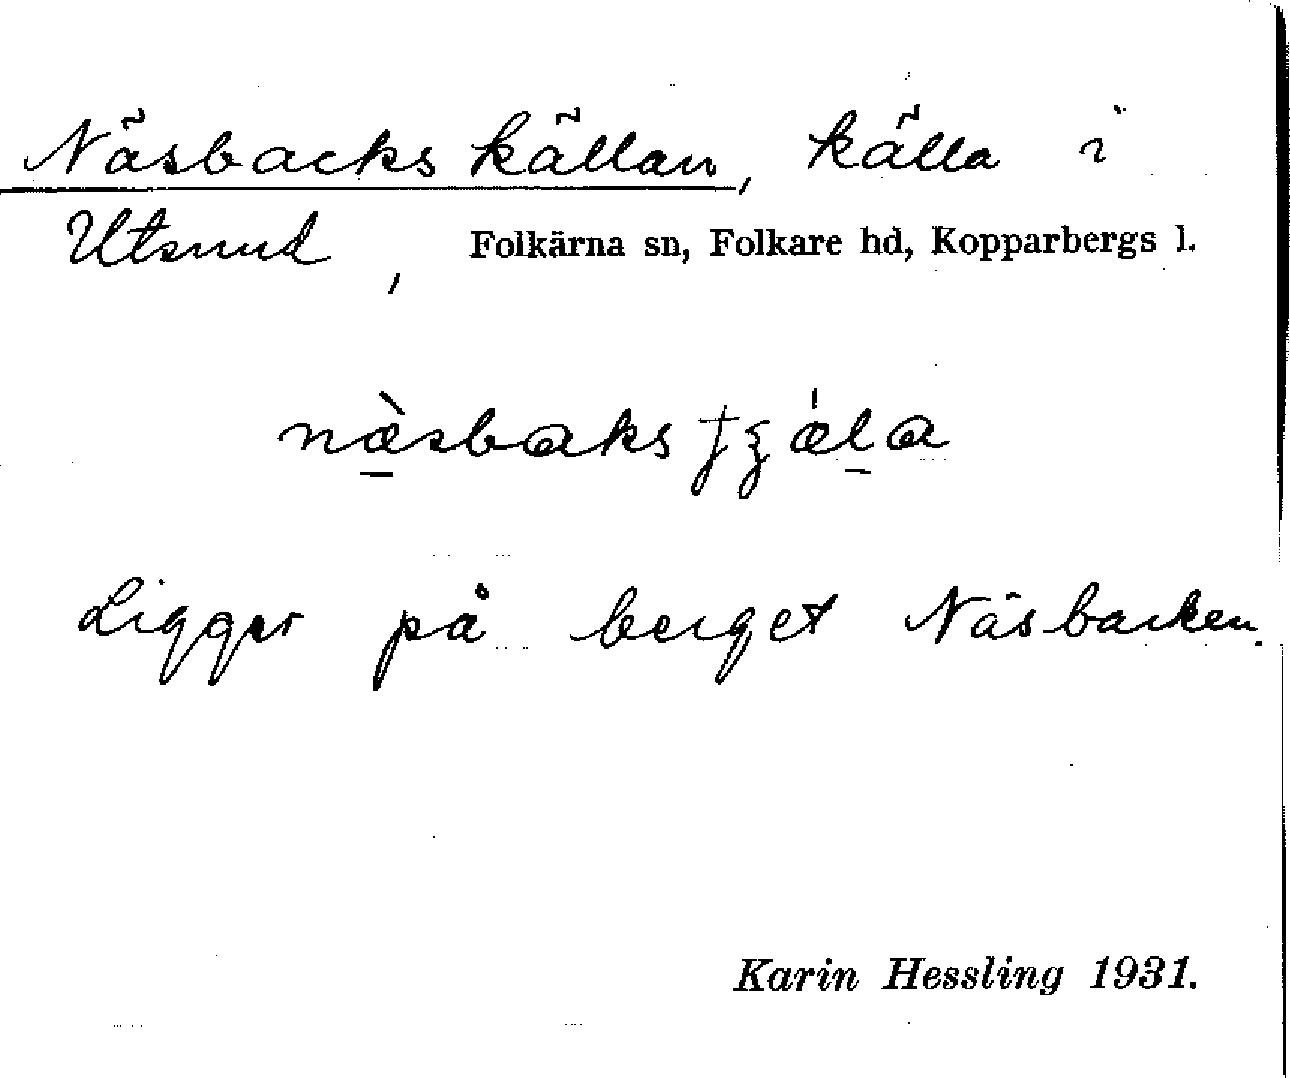 Näsbackskällan, källa i
Utsund, Folkärna sn, Folkare hd, Kopparbergs l.
næ̀sbaksʈʒǽla
Ligger på berget Näsbacken.
Karin Hessling 1931.